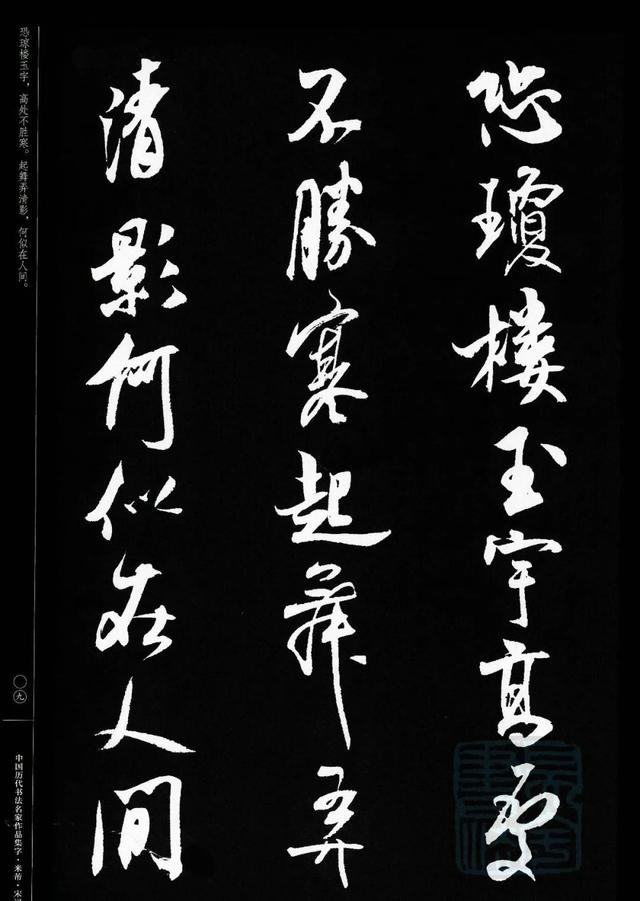 恐瓊樓玉宇高處
不勝寒起舞弄
清影何似在人間
恐琼楼玉宇，高处不胜寒。起舞弄清影，何似在人间。
〇九
中国历代书法名家作品集字·米芾·宋词